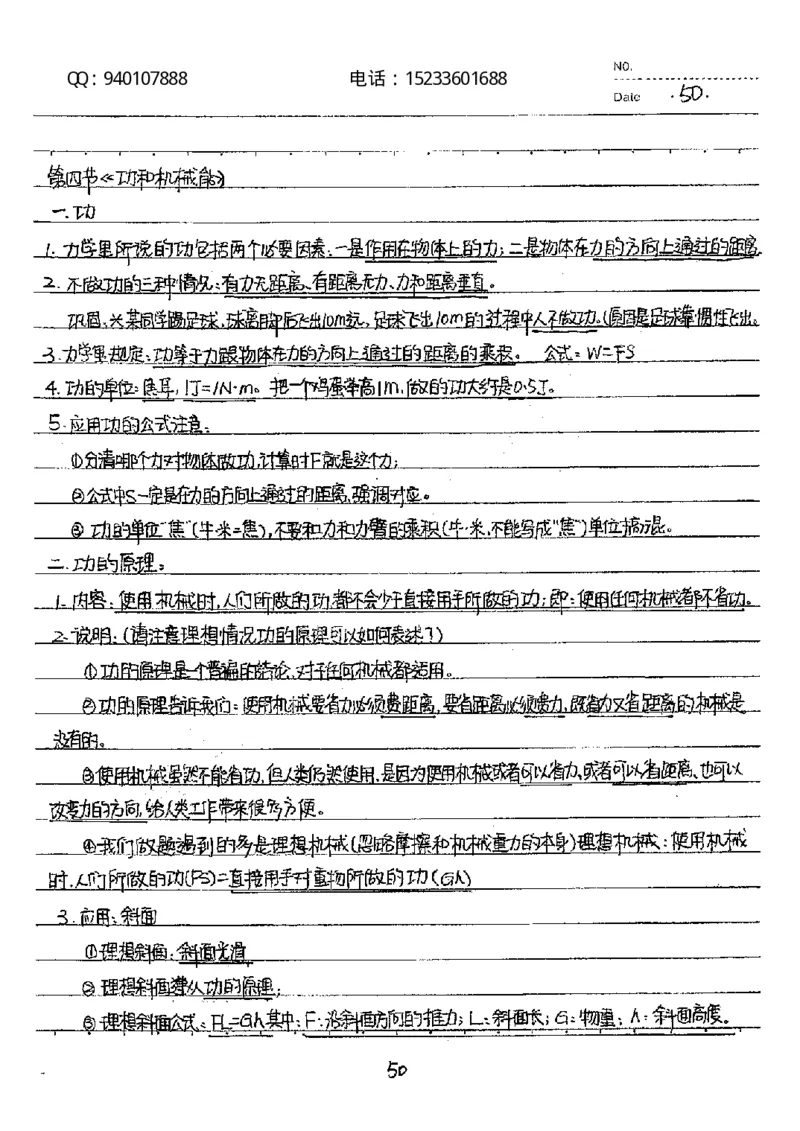 QQ：940107888 电话：15233601688 NO.
Date ·50·
第四节《功和机械能》
一.功
1. 力学里所说的功包括两个必要因素：一是作用在物体上的力；二是物体在力的方向上通过的距离.
2. 不做功的三种情况：有力无距离、有距离无力、力和距离垂直。
巩固：☆某同学踢足球，球离脚后飞出10m远，足球飞出10m的过程中人不做功。(原因是足球靠惯性飞出。
3. 力学里规定：功等于力跟物体在力的方向上通过的距离的乘积。 公式：W=FS
4. 功的单位：焦耳，1J=1N·m。把一个鸡蛋举高1m，做的功大约是0.5J。
5. 应用功的公式注意：
①分清哪个力对物体做功，计算时F就是这个力；
②公式中S一定是在力的方向上通过的距离，强调对应。
③ 功的单位"焦"(牛·米=焦)，不要和力和力臂的乘积(牛·米，不能写成"焦")单位搞混。
二.功的原理：
1. 内容：使用机械时，人们所做的功，都不会少于直接用手所做的功；即：使用任何机械都不省功。
2. 说明：(请注意理想情况功的原理可以如何表述?)
①功的原理是一个普遍的结论，对于任何机械都适用。
②功的原理告诉我们：使用机械要省力必须费距离，要省距离必须费力，既省力又省距离的机械是
没有的。
③使用机械虽然不能省功，但人类仍然使用，是因为使用机械或者可以省力、或者可以省距离、也可以
改变力的方向，给人类工作带来很多方便。
④我们做题遇到的多是理想机械(忽略摩擦和机械重力的本身)理想机械：使用机械
时，人们所做的功(FS)=直接用手对重物所做的功(Gh)
3. 应用：斜面
①理想斜面：斜面光滑
②理想斜面遵从功的原理；
③理想斜面公式：FL=Gh 其中：F：沿斜面方向的推力；L：斜面长；G：物重；h：斜面高度。
50